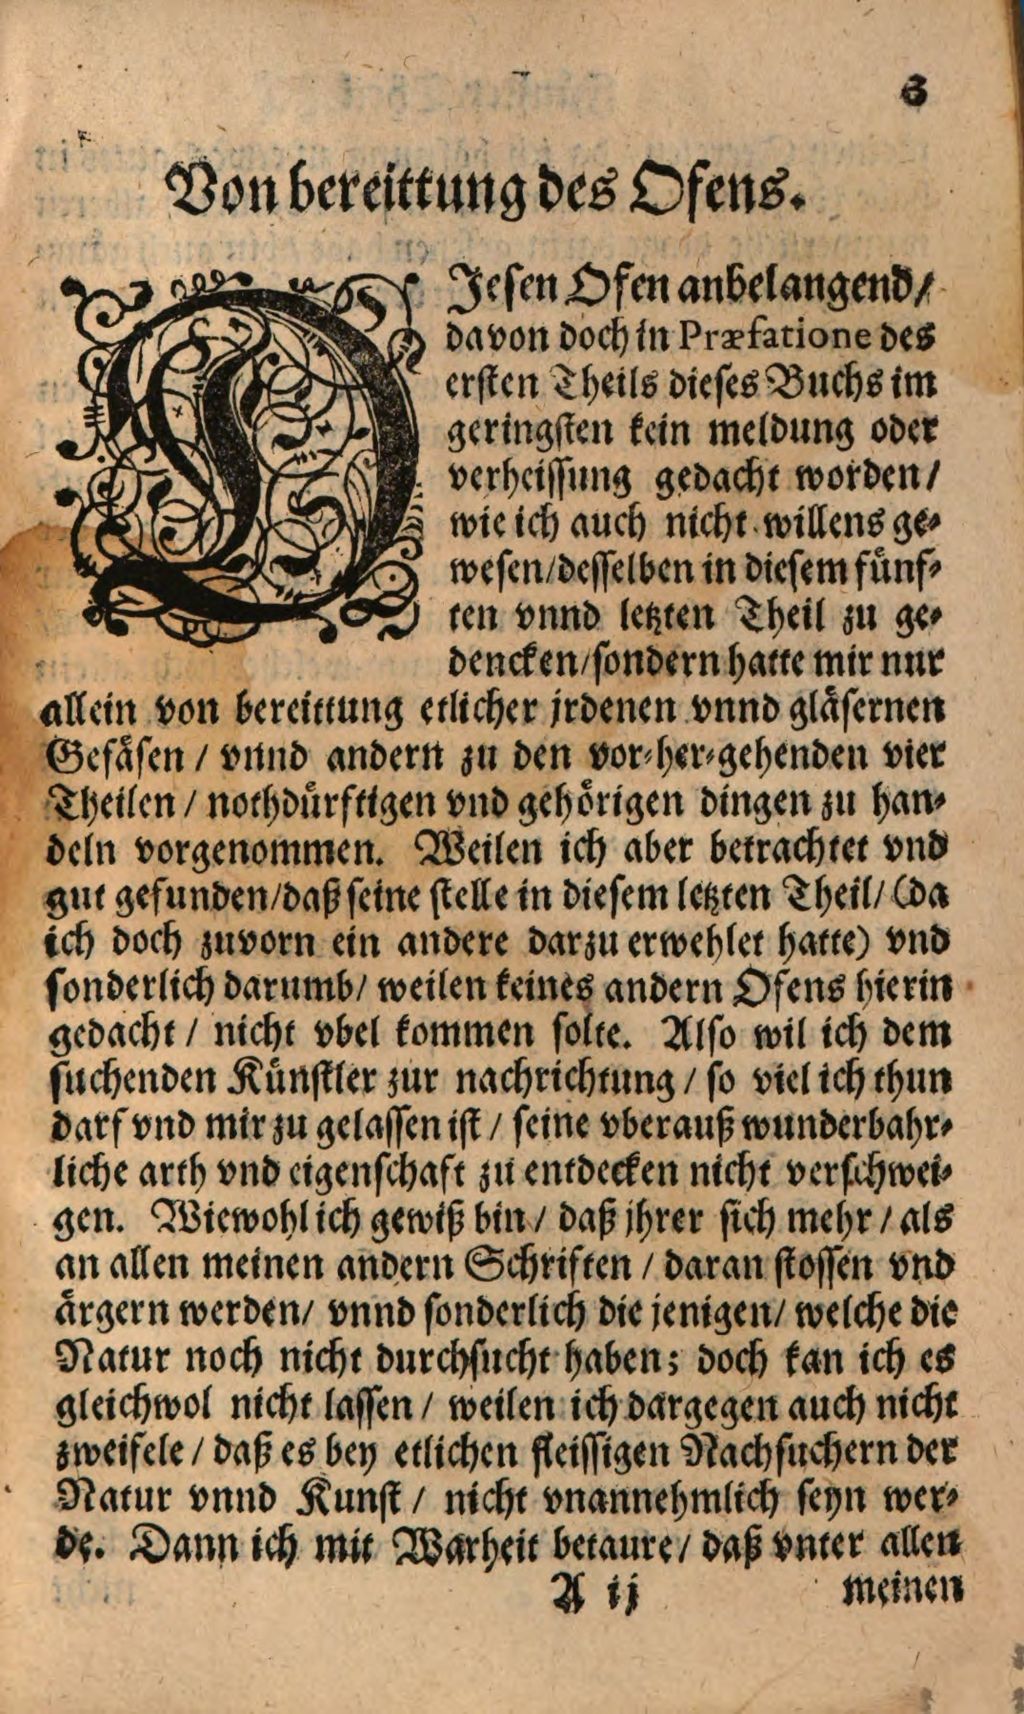 6
Von bereittung des Ofens.
DIesen Ofen anbelangend/
davon doch in Præfatione des
ersten Theils dieses Buchs im
geringsten kein meldung oder
verheissung gedacht worden/
wie ich auch nicht willens ge⸗
wesen/desselben in diesem fünf⸗
ten vnnd letzten Theil zu ge⸗
dencken/sondern hatte mir nur
allein von bereittung etlicher jrdenen vnnd gläsernen
Gefäsen / vnnd andern zu den vor⸗her⸗gehenden vier
Theilen / nothdürftigen vnd gehörigen dingen zu han⸗
deln vorgenommen. Weilen ich aber betrachtet vnd
gut gefunden/daß seine stelle in diesem letzten Theil/ (da
ich doch zuvorn ein andere darzu erwehlet hatte) vnd
sonderlich darumb/ weilen keines andern Ofens hierin
gedacht / nicht vbel kommen solte. Also wil ich dem
suchenden Künstler zur nachrichtung / so viel ich thun
darf vnd mir zu gelassen ist / seine vberauß wunderbahr⸗
liche arth vnd eigenschaft zu entdecken nicht verschwei⸗
gen. Wiewohl ich gewiß bin / daß jhrer sich mehr / als
an allen meinen andern Schriften / daran stossen vnd
ärgern werden/ vnnd sonderlich die jenigen/ welche die
Natur noch nicht durchsucht haben; doch kan ich es
gleichwol nicht lassen / weilen ich dargegen auch nicht
zweifele / daß es bey etlichen fleissigen Nachsuchern der
Natur vnnd Kunst / nicht vnannehmlich seyn wer⸗
de. Dann ich mit Warheit betaure / daß vnter allen
A ij
meinen